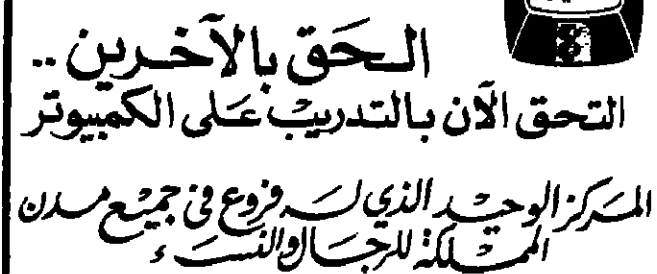 الحَق بالآخرين ..
التحق الآن بالتدريب عَلى الكمبيوتر
المركز الوحيد الذي له فروع في جميع مدن
المملكة للرجال والنساء